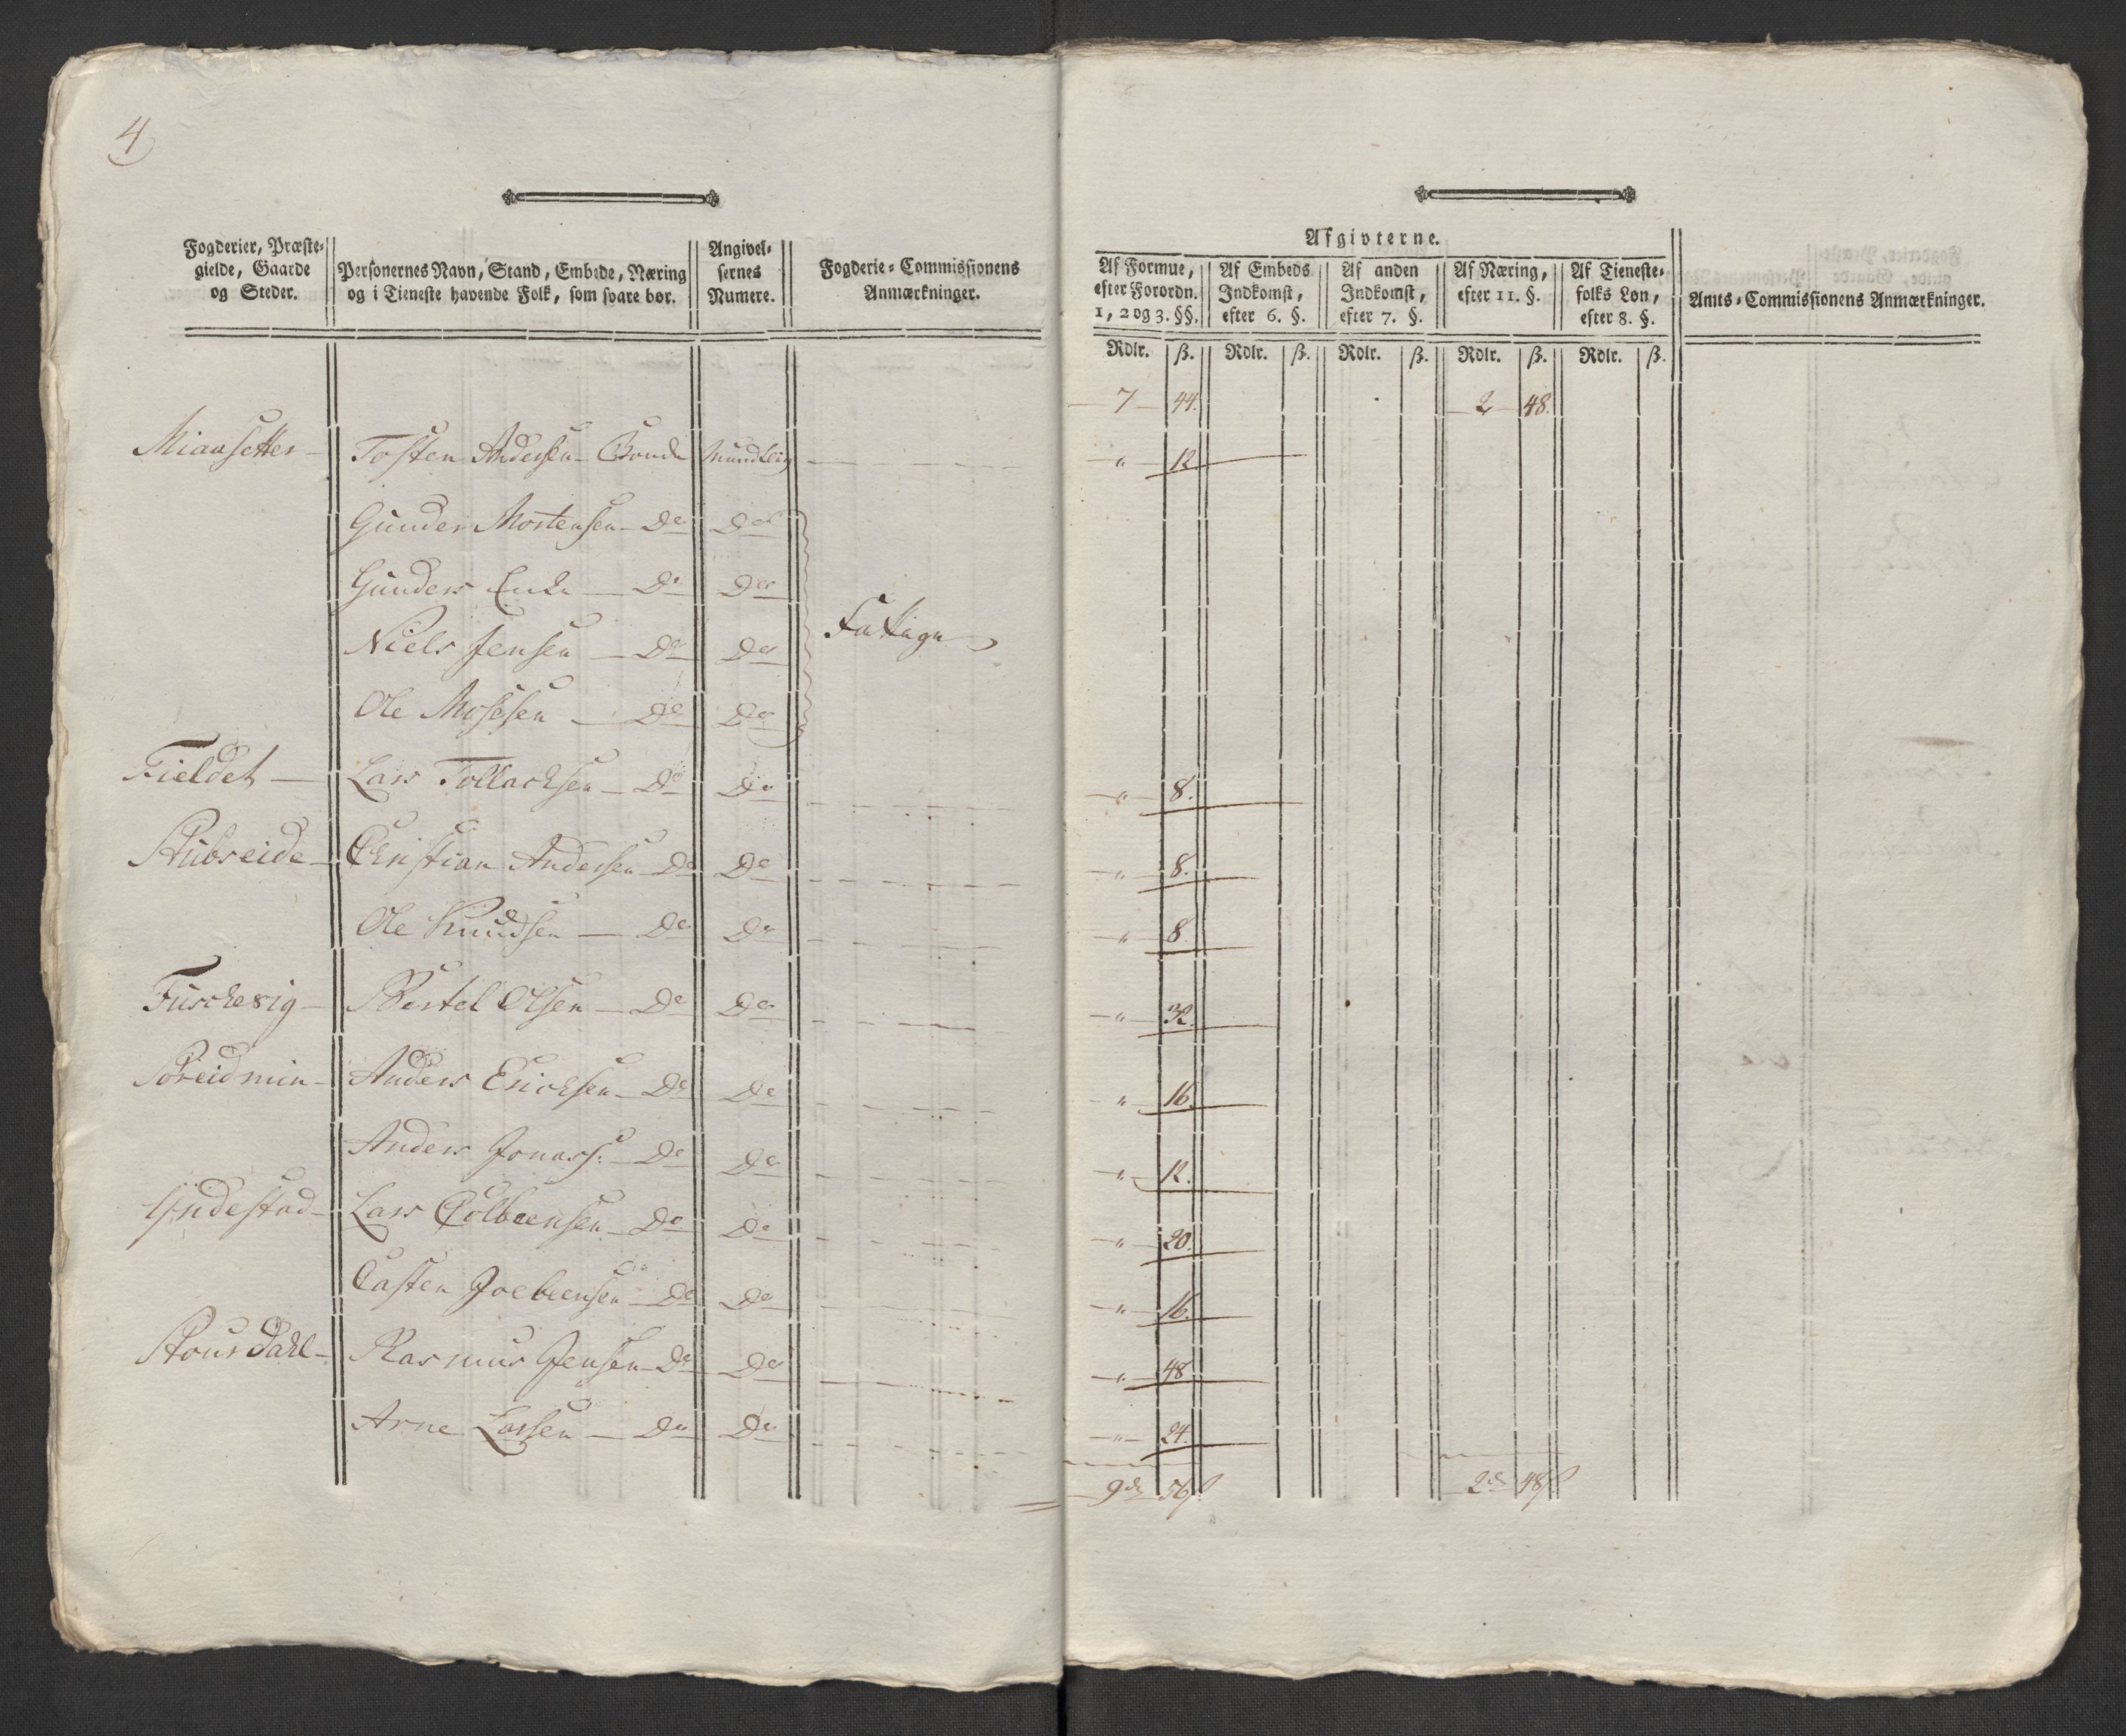 4
Fogderier, Præste-
gielde, Gaarde
og Steder.
Personernes Navn, Stand, Embede, Næring
og i Tieneste havende Folk, som svare bør.
Angivel-
sernes
Numere.
Fogderie-Commissionens
Anmærkninger.
Afgivterne.
Af Formue,
efter Forordn.
1, 2 og 3. §§.
Af Embeds
Indkomst,
efter 6. §.
Af anden
Indkomst,
efter 7. §.
Af Næring,
efter 11. §.
Af Tieneste-
folks Løn,
efter 8. §.
Amts-Commissionens Anmærkninger.
Rdlr. ß. Rdlr. ß. Rdlr. ß. Rdlr. ß. Rdlr. ß.
7 44. 2 48.
Miansetter Tosten Andersen Bonde Mundtlig " 12
Gunder Mortensen Do Do
Gunders Enke Do Do
Niels Jensen Do Do Fattige
Ole Mosesen Do Do
Fieldet Lars Tollachsen Do Do " 8.
Stubseide Christian Andersen Do Do " 8.
Ole Knudsen Do Do " 8
Furchevig Bertel Olsen Do Do " 32.
Breidmin Anders Erichsen Do Do " 16.
Anders Jonass: Do Do " 12.
Indestad Lars Colbeensen Do Do " 20.
Casten Joebeensen Do Do " 16.
Stousdahl Rasmus Jensen Do Do " 48
Arne Larsen Do Do " 24.
9 56 2 48